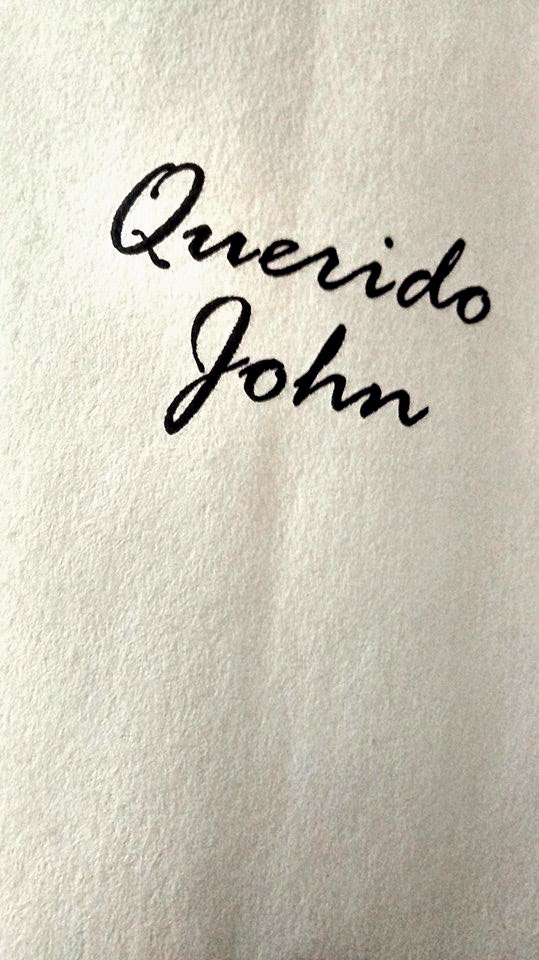 Querido
John